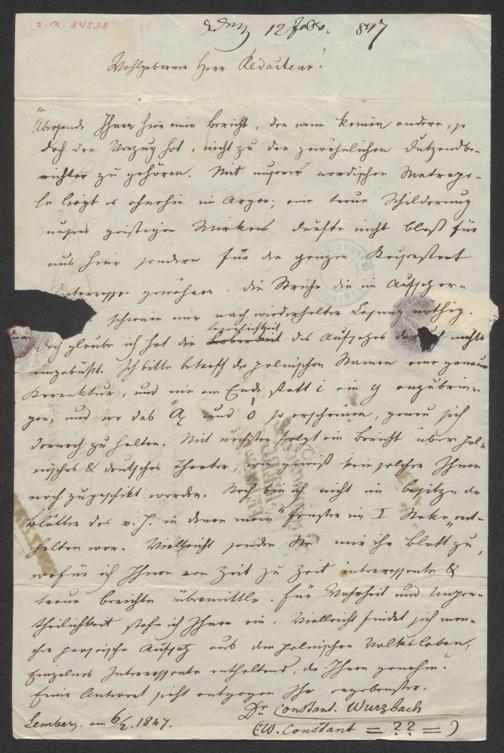 I. N. 84538
12 Febr. 847
Wohlgeborner Herr Redacteur!
Übersende Ihnen hier einen Bericht, der wenn keinen andern, so
doch den Vorzug hat, nicht zu den gewöhnlichen Dutzendbe-
richten zu gehören. Mit unserer nordischen Metropo-
le liegt es ohnehin im Argen; eine treue Schilderung
unsers geistigen Wirkens dürfte nicht bloß für
uns hier sondern für den ganzen Kaiserstaat
Interesse gewähren. Die Striche die im Aufsatz er-
scheinen mir nach wiederholter Lesung nöthig.
Doch glaube ich hat die des Aufsatzes nichts
eingebüßt. Ich bitte betreff der polnischen Namen eine genaue
Korrektur, und wie am Ende statt i ein y anzubrin-
gen, und wo das Ą und ó so erscheinen, genau sich
darnach zu halten. Mit nächstem folgt ein Bericht über pol-
nisches & deutsches Theater, wie gewiß kein solcher Ihnen
noch zugeschickt worden. Noch bin ich nicht im Besitze der
Blätter des v. J. in denen mein "Fenster im I Stoke" ent-
halten war. Vielleicht senden Sie mir ihr Blatt zu,
wofür ich Ihnen von Zeit zu Zeit interessante &
treue Berichte übermittle. Für Wahrheit und Unpar-
theilichkeit stehe ich Ihnen ein. Vielleicht findet sich man-
cher Aufsatz aus dem polnischen Volksleben,
Einzelnes Interessante enthaltend, der Ihnen genehm.
Einer Antwort sieht entgegen Ihr ergebenster
Dr Constant. Wurzbach
Lemberg. am 6/2. 1847.
(W. Constant = ?? = )